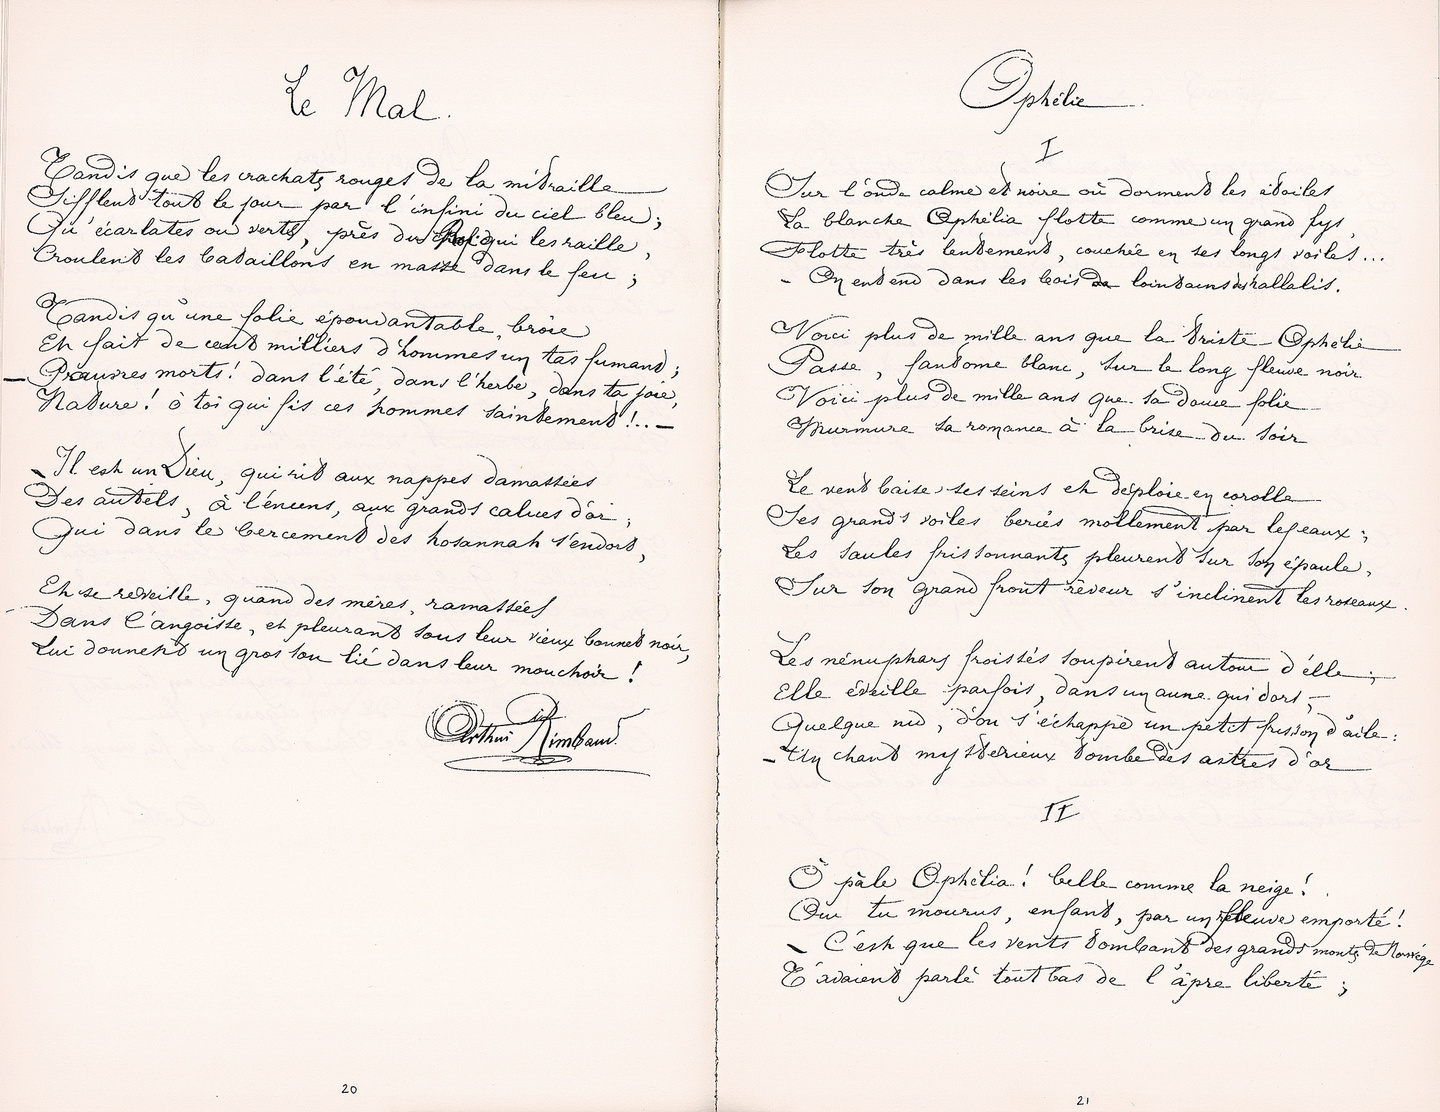 Le Mal.
Tandis que les crachats rouges de la mitraille
Sifflent tout le jour par l'infini du ciel bleu ;
Qu'écarlates ou verts, près du qui les raille,
Croulent les bataillons en masse dans le feu ;
Tandis qu'une folie épouvantable, broie
Et fait de cent milliers d'hommes un tas fumant ;
— Pauvres morts ! dans l'été, dans l'herbe, dans ta joie,
Nature ! ô toi qui fis ces hommes saintement !.. —
— Il est un Dieu, qui rit aux nappes damassées
Des autels, à l'encens, aux grands calices d'or ;
Qui dans le bercement des hosannah s'endort,
Et se réveille, quand des mères, ramassées
Dans l'angoisse, et pleurant sous leur vieux bonnet noir,
Lui donnent un gros sou lié dans leur mouchoir !
Arthur Rimbaud.
20
Ophélie
I
Sur l'onde calme et noire où dorment les étoiles
La blanche Ophélia flotte comme un grand lys,
Flotte très lentement, couchée en ses longs voiles...
– On entend dans les bois de lointains hallalis.
Voici plus de mille ans que la triste Ophélie
Passe, fantome blanc, sur le long fleuve noir
Voici plus de mille ans que sa douce folie
Murmure sa romance à la brise du soir
Le vent baise ses seins et déploie en corolle
Ses grands voiles bercés mollement par les eaux ;
Les saules frissonnants pleurent sur son épaule,
Sur son grand front rêveur s'inclinent les roseaux.
Les nénuphars froissés soupirent autour d'elle ;
Elle éveille parfois, dans un aune qui dort,
Quelque nid, d'où s'échappe un petit frisson d'aile :
– Un chant mystérieux tombe des astres d'or
II
Ô pâle Ophélia ! belle comme la neige !
Oui tu mourus, enfant, par un fleuve emporté !
– C'est que les vents tombant des grands monts de Norwège
T'avaient parlé tout bas de l'âpre liberté ;
21